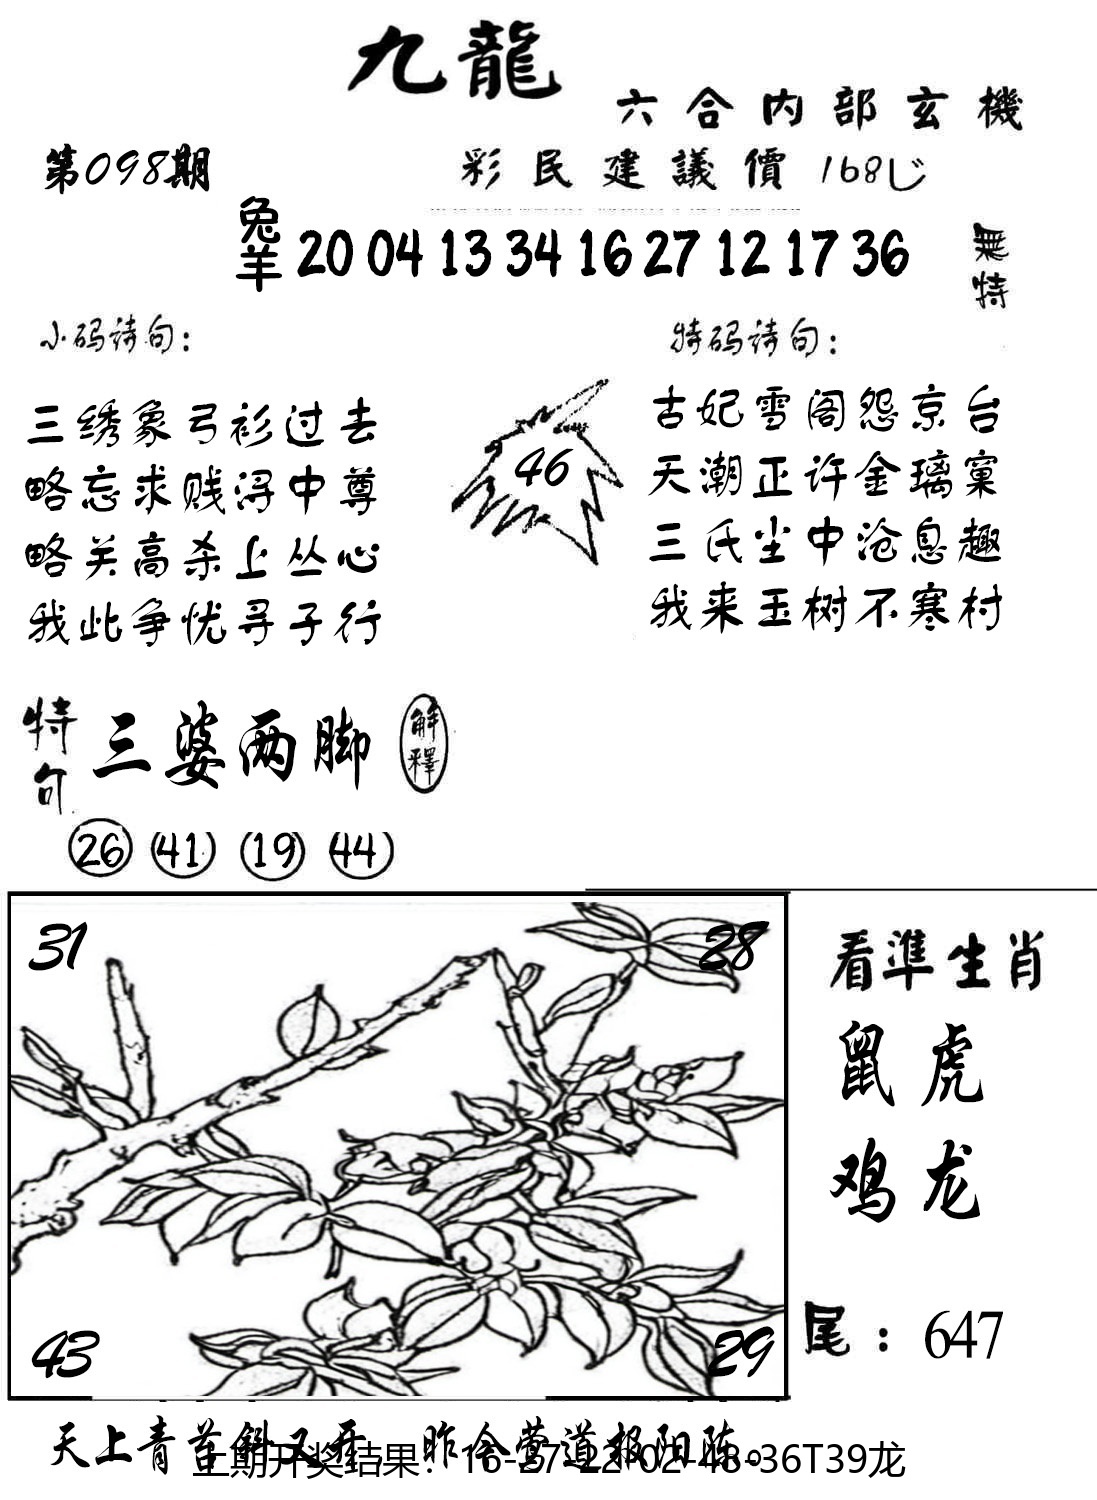 九龍
六合内部玄機
第098期
彩民建議價 168
兔羊 20 04 13 34 16 27 12 17 36
無特
小码诗句：
三绣象弓衫过去
略忘求贱浔中尊
略关高杀上丛心
我此争忧寻子行
46
特码诗句：
古妃雪阁怨京台
天潮正许金璃窠
三氏尘中沧息趣
我来玉树不寒村
特句 三婆两脚 解釋
26 41 19 44
31 28
43 29
看準生肖
鼠虎
鸡龙
尾：647
天上青苔斜又开，昨会莺道报阳陈。
上期开奖结果：16-27-22-02-48-36T39龙